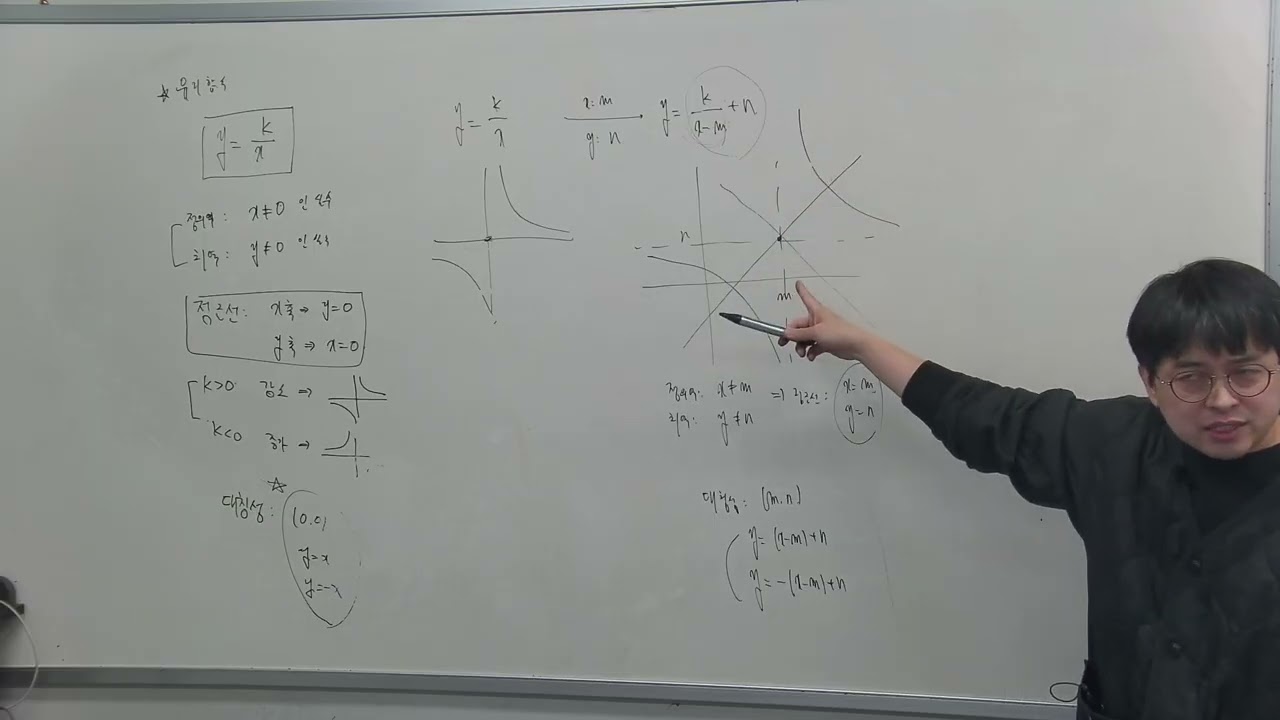 ☆ 유리함수
y = k/x
정의역: x≠0 인 실수
치역: y≠0 인 실수
점근선: x축 → y=0
y축 ⇒ x=0
k>0 감소 ⇒
k<0 증가 →
대칭성: ☆
(0.0)
y=x
y=-x
y = k/x
x: m
y: n
y = k/(x-m) + n
n
m
정의역: x≠m ⇒ 점근선: x=m
치역: y≠n y=n
대칭성: (m.n)
y = (x-m)+n
y = -(x-m)+n